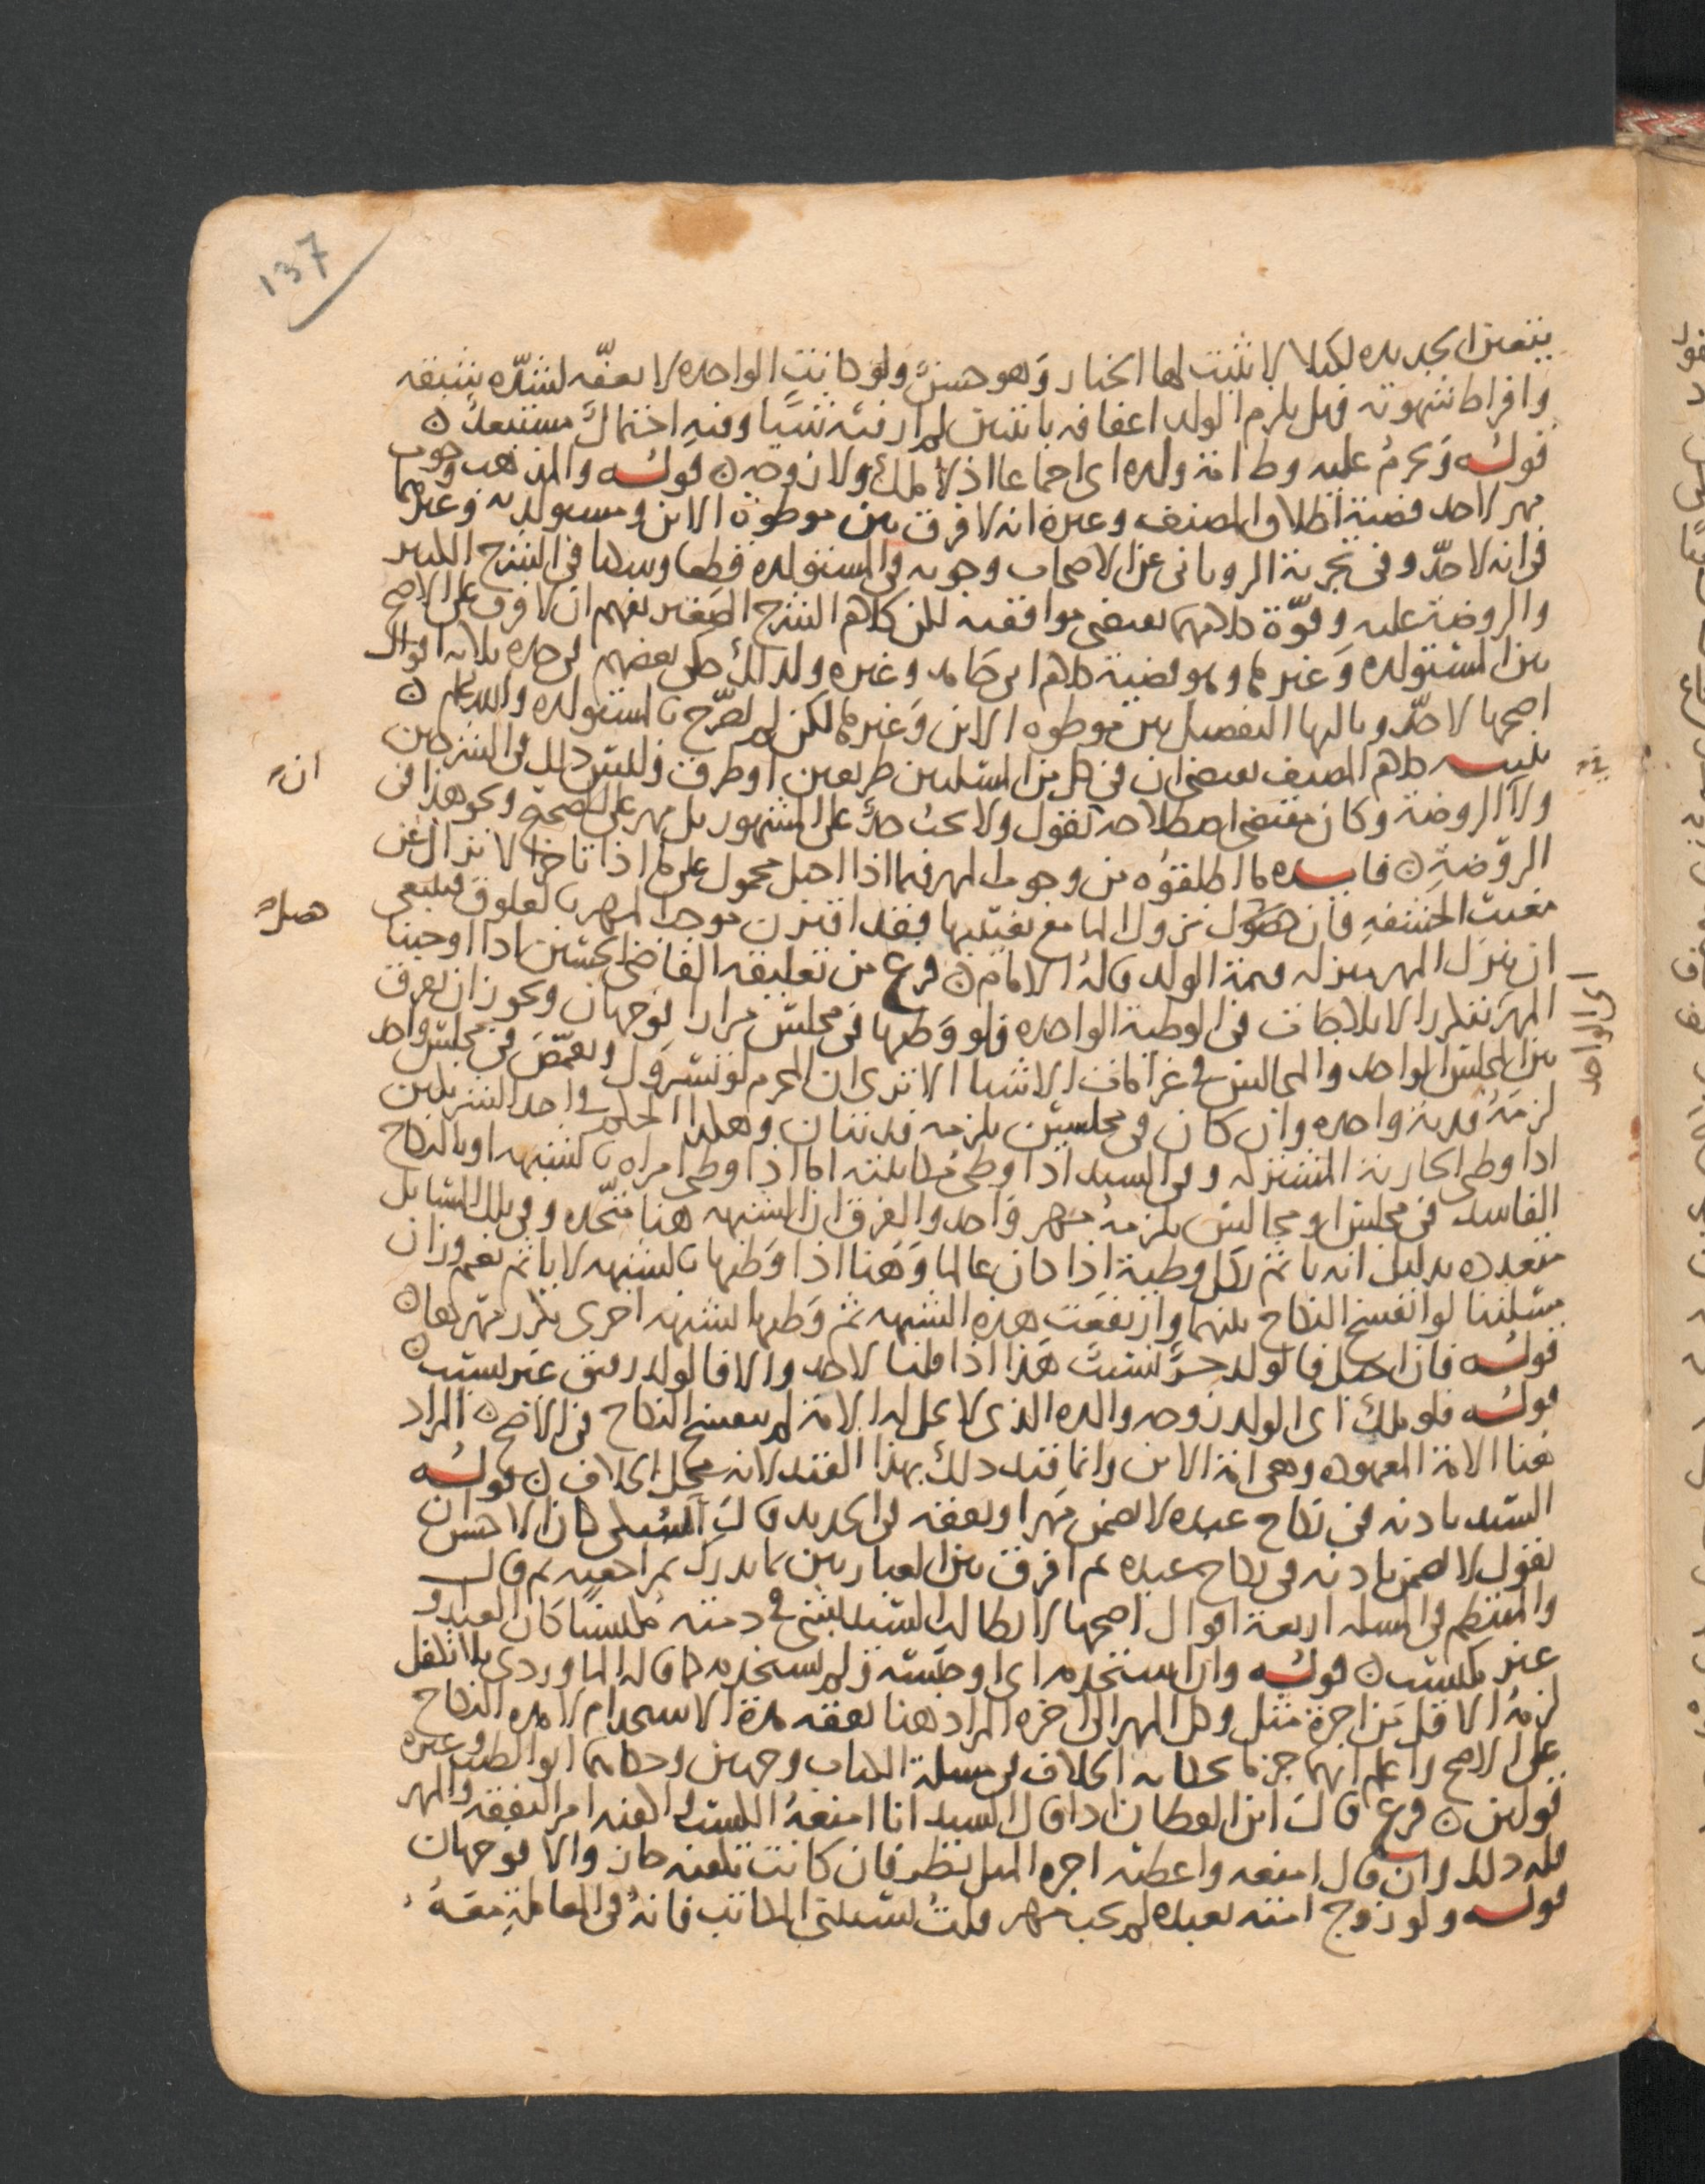 137
يتعين الجديده لكيلا لا يثبت لها الخيار وهو حسن ولو كانت الواحده لا تعفه لشدة شبقه
وافراط شهوته فهل يلزم الولد اعفافه باثنتين لم ار فيه شيا وفيه احتمال مستبعد ن
قوله ويحرم عليه وطء امة ولده اى اجماعا اذ لا ملك ولا زوجيه ن قوله والمذهب وجوب
مهر لا حد قضية اطلاق المصنف وغيره انه لا فرق بين موطوة الابن ومستولدته وغيرهما
في انه لا حد وفي تجربة الروياني عن الاصحاب وجوبه في المستولدة قطعا وسكتا في الشرح الكبير
والروضة عليه وقوة كلامهما تقتضى موافقته لكن كلام الشرح الصغير يفهم ان لا فرق على الاصح
بين المستولده وغيرها وهو قضية كلام ابي حامد وغيره ولذلك حكى بعضهم في حده ثلاثة اقوال
اصحها لا حد وثالثها التفصيل بين موطوه الابن وغيرها لكن لم يصرح بالمستولده والله اعلم ن
تنبيه كلام المصنف يقتضى ان في كل من المسلتين طريقين او طرق وليس ذلك في الشرحين
ان
ولا الروضة وكان مقتضى اصطلاحه ان يقول ولا يجب حد على المشهور بل مهر على الصحيح ونحو هذا في
الروضة ن فايده ما اطلقوه من وجوب المهر فيما اذا احبل محمول على ما اذا تاخر الانزال عن
مغيب الحشفه فان حصول نزول الما مع تغييبها فقد اقترن موجب المهر بالعلوق فينبغى
حصل
ان ينزل المهر منزلة قيمة الولد قاله الامام ن فرع من تعليقة القاضى الحسين اذا اوجبنا
المهر بتكرر الايلاجات في الوطية الواحده فلو وطيها في مجلس مرارا فوجهان ويجوز ان يفرق
بين المجلس الواحد والمجالس في غرامات الاشيا الا ترى ان المحرم لو تسرول وتقمص في مجلس واحد
اى الواحد
لزمه فدية واحده وان كان في مجلسين يلزمه فديتان وهكذا الحكم في احد الشريكين
اذا وطى الجارية المشتركه وفي السيد اذا وطى مكاتبته اما اذا وطى امراه بالشبهه او بالنكاح
الفاسد في مجلس او مجالس يلزمه مهر واحد والفرق ان الشبهه هنا متحده وفي تلك المسايل
متعدده بدليل انه ياثم بكل وطية اذا كان عالما وههنا اذا وطيها بالشبهه لا ياثم نعم وزان
مسلتنا لو انفسخ النكاح بينهما وارتفعت هذه الشبهه ثم وطيها بشبهة اخرى تكرر مهرها ن
قوله فان احبل فالولد حر نسيب هذا اذا قلنا لا حد والا فالولد رقيق غير نسيب ن
قوله فلو ملك اى الولد زوجه والده الذى لا تحل له الامة لم ينفسخ النكاح في الاصح ن المراد
هنا الامة المعهوده وهى امة الابن وانما قيد ذلك بهذا القيد لانه محل الخلاف ن قوله
السيد باذنه في نكاح عبده لا يضمن مهرا ونفقه في الجديد قال السبكى كان الاحسن ان
يقول لا يضمن باذنه في نكاح عبده ثم افرق بين العبارتين بما يدرك بمراجعته ثم قال
والمنتظم في المسله اربعة اقوال اصحها لا يطالب السيد بشى في ذمته مكتسبا كان العبد او
غير مكتسب ن قوله وان استخدمه اى او حبسه ولم يستخدمه كما قاله الماوردى بل انتقل
لزمه الاقل من اجرة مثل وكل المهر الى اخره المراد هنا نفقه مدة الاستخدام لا مدة النكاح
على الاصح واعلم انهما جزما بحكاية الخلاف في مسلة الكتاب وجهين وحكاهما ابو الطيب وغيره
قولين ن فرع قال ابن القطان اذا قال السيد انا امنعه الكسب واكفيه امر النفقه والمهر
فله ذلك وان قال امنعه واعطيه اجره المثل نظر فان كانت تكفيه جاز والا فوجهان
قوله ولو زوج امته بعبده لم يجب مهر قلت تستثنى المكاتب فانه في المعاملة معه